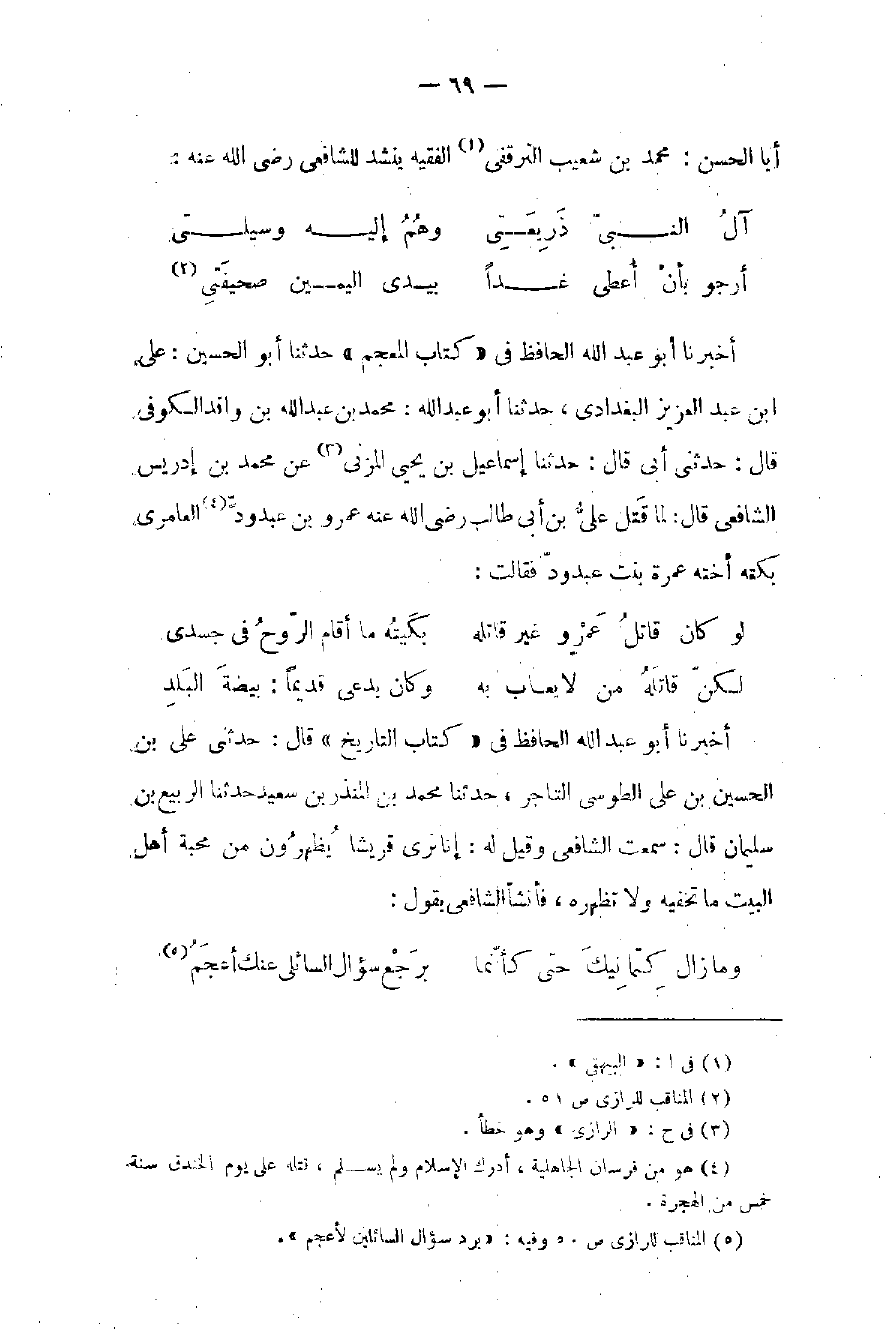 — ٦٩ —
أبا الحسن : محمد بن شعيب البرقفى(١) الفقيه ينشد للشافعى رضى الله عنه :
آلُ النــبىّ ذَرِيعَــتِى وهُمُ إليــه وسيلــتى
أرجو بأنْ أُعطى غــداً بيــدى اليمــين صحيفَتِي(٢)
أخبرنا أبو عبد الله الحافظ فى « كتاب المعجم » حدثنا أبو الحسين : على
ابن عبد العزيز البغدادى ، حدثنا أبو عبدالله : محمد بن عبدالله بن واقد الكوفى
قال : حدثنى أبى قال : حدثنا إسماعيل بن يحيى المزنى(٣) عن محمد بن إدريس
الشافعى قال : لما قَتل علىُّ بن أبى طالب رضى الله عنه عمرو بن عبدودّ(٤) العامرى
بكته أخته عمرة بنت عبدودّ فقالت :
لو كان قاتلُ عَمْرٍو غير قاتله بكَيتُه ما أقام الرّوحُ فى جسدى
لـكنّ قاتلَهُ من لايعـاب به وكان يدعى قديمًا : بيضةَ البَلدِ
أخبرنا أبو عبد الله الحافظ فى « كتاب التاريخ » قال : حدثنى على بن
الحسين بن على الطوسى التاجر ، حدثنا محمد بن المنذر بن سعيد حدثنا الربيع بن
سليمان قال : سمعت الشافعى وقيل له : إنا نرى قريشا يُظهرُون من محبة أهل
البيت ما تخفيه ولا تظهره ، فأنشأ الشافعى يقول :
وما زال كِتمانِيكَ حتى كأنَّما برَجْع سؤال السائلى عنك أعجَمُ(٥)
(١) فى ا : « البيهقى » .
(٢) المناقب للرازى ص ٥١ .
(٣) فى ح : « الرازى » وهو خطأ .
(٤) هو من فرسان الجاهلية ، أدرك الإسلام ولم يســلم ، قتله على يوم الخندق سنة
خمس من الهجرة .
(٥) المناقب للرازى ص ٥٠ وفيه : « برد سؤال السائلين لأعجم » .